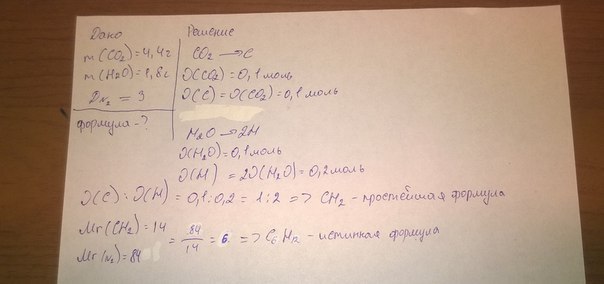 Дано
m(CO₂)=4,4г
m(H₂O)=1,8г
D N₂ = 3
формула-?
Решение
CO₂ → C
ν(CO₂)=0,1моль
ν(C)=ν(CO₂)=0,1моль
H₂O → 2H
ν(H₂O)=0,1моль
ν(H) = 2ν(H₂O)=0,2моль
ν(C):ν(H)=0,1:0,2=1:2 => CH₂ - простейшая формула
Mr(CH₂)=14
Mr(N₂)=84
= 84/14 = 6 => C₆H₁₂ - истинная формула